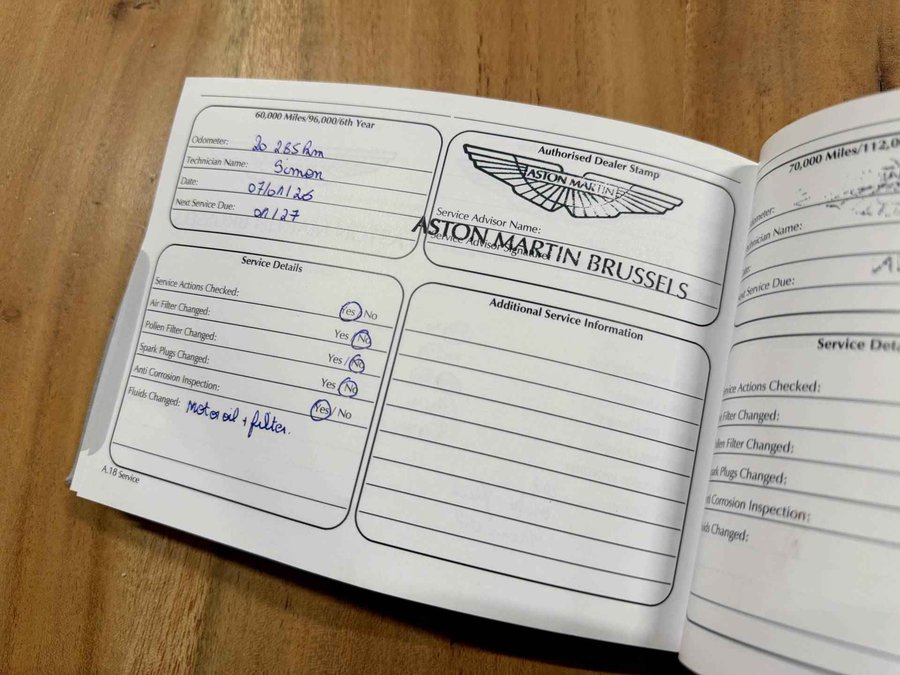 60,000 Miles/96,000/6th Year
Odometer: 20 285 km
Technician Name: Simon
Date: 07/01/26
Next Service Due: 01/27
Authorised Dealer Stamp
ASTON MARTIN
Service Advisor Name:
Service Advisor Signature:
ASTON MARTIN BRUSSELS
Service Details
Service Actions Checked: Yes / No
Air Filter Changed: Yes / No
Pollen Filter Changed: Yes / No
Spark Plugs Changed: Yes / No
Anti Corrosion Inspection: Yes / No
Fluids Changed: Motor oil + filter.
Additional Service Information
A.18 Service
70,000 Miles/112,0
ometer:
chnician Name:
te:
xt Service Due:
Service Deta
vice Actions Checked:
Filter Changed:
llen Filter Changed:
ark Plugs Changed:
ti Corrosion Inspection:
uids Changed: